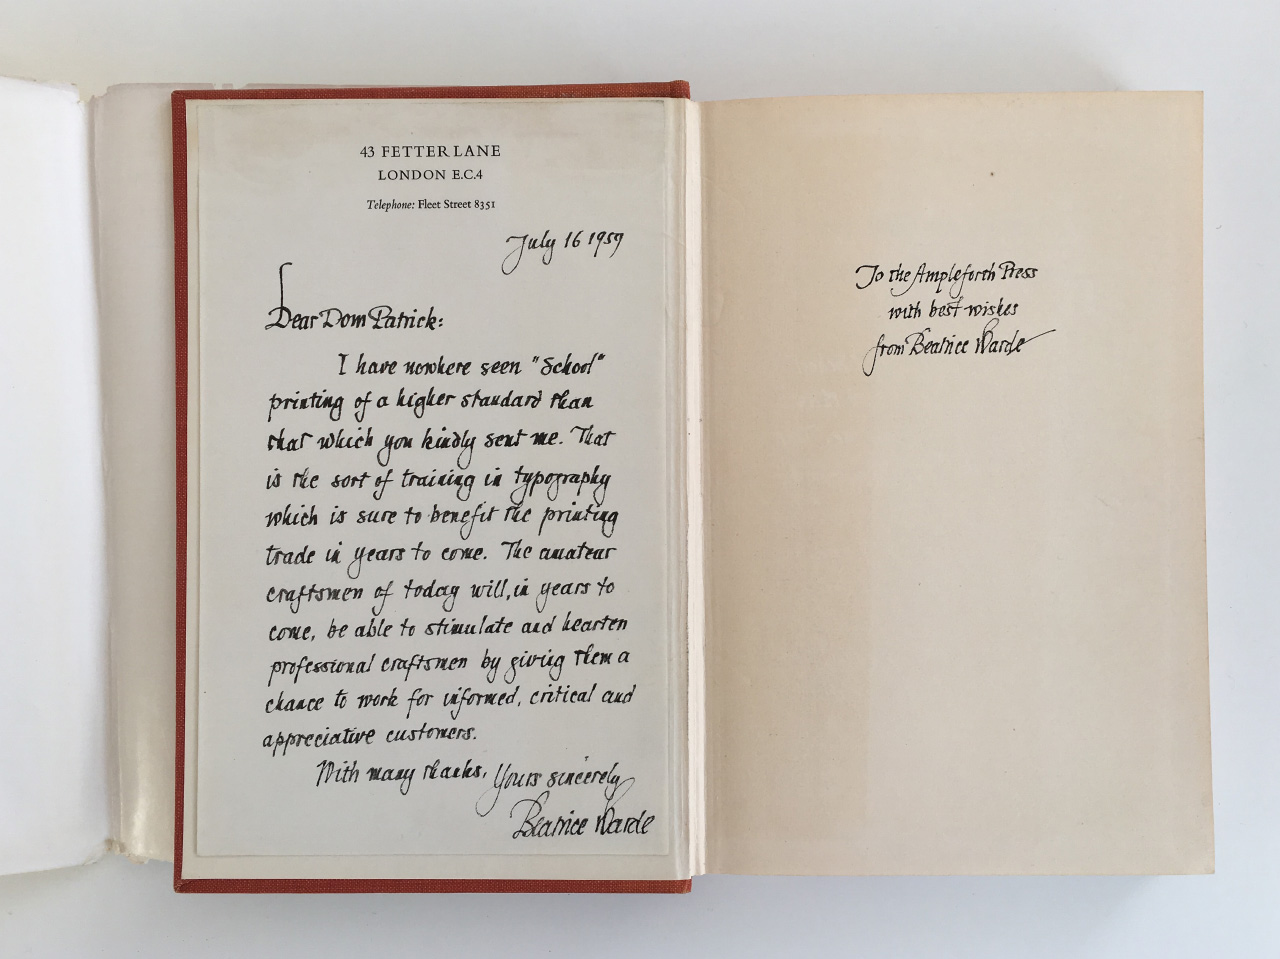 43 FETTER LANE
LONDON E.C.4
Telephone: Fleet Street 8351
July 16 1959
Dear Dom Patrick:
I have nowhere seen "School"
printing of a higher standard than
that which you kindly sent me. That
is the sort of training in typography
which is sure to benefit the printing
trade in years to come. The amateur
craftsmen of today will, in years to
come, be able to stimulate and hearten
professional craftsmen by giving them a
chance to work for informed, critical and
appreciative customers.
With many thanks, Yours sincerely
Beatrice Warde
To the Ampleforth Press
with best wishes
from Beatrice Warde